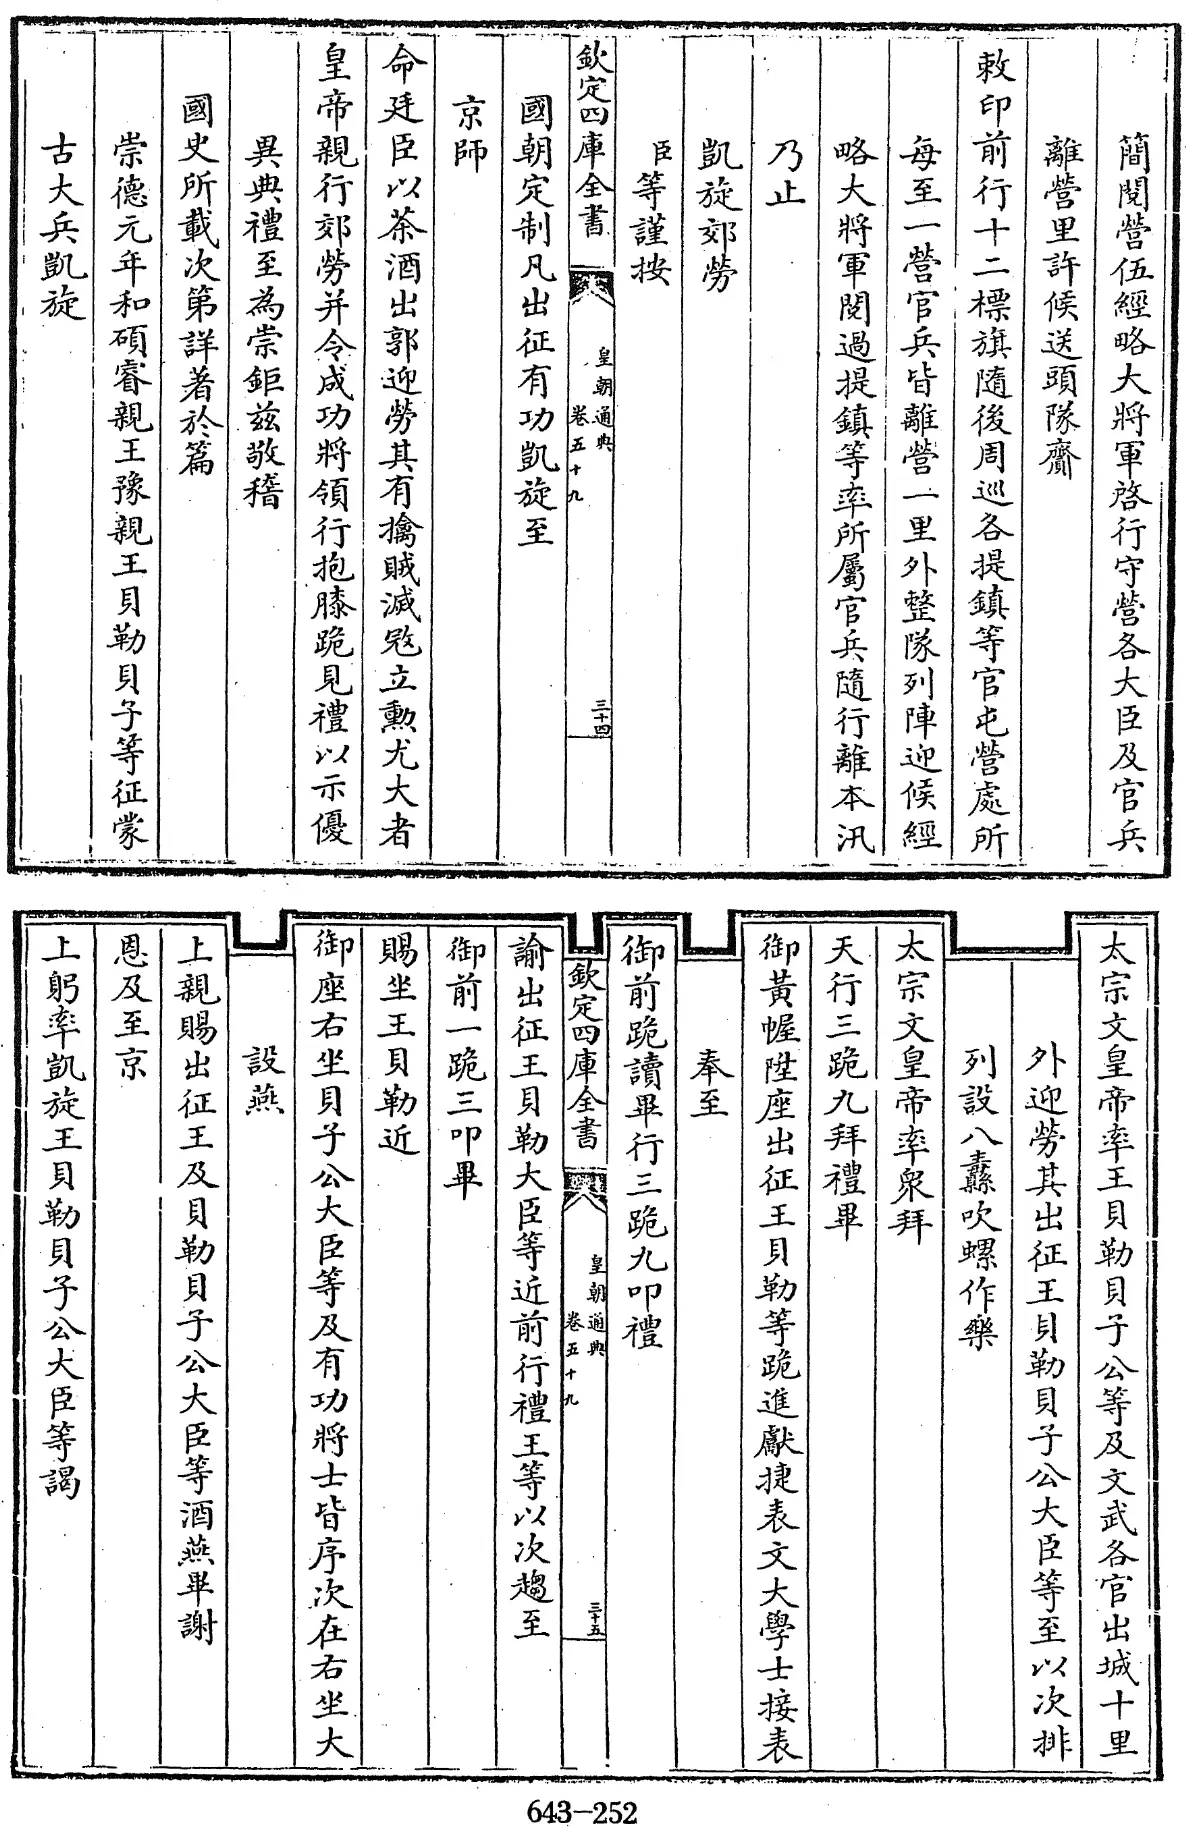 簡閱營伍經略大將軍啓行守營各大臣及官兵
離營里許候送頭隊齎
敕印前行十二標旗隨後周巡各提鎮等官屯營處所
每至一營官兵皆離營一里外整隊列陣迎候經
略大將軍閱過提鎮等率所屬官兵隨行離本汛
乃止
凱旋郊勞
臣等謹按
欽定四庫全書
皇朝通典
卷五十九
三十四
國朝定制凡出征有功凱旋至
京師
命廷臣以茶酒出郭迎勞其有擒賊滅寇立勲尤大者
皇帝親行郊勞并令成功將領行抱膝跪見禮以示優
異典禮至為崇鉅兹敬稽
國史所載次第詳著於篇
崇德元年和碩睿親王豫親王貝勒貝子等征蒙
古大兵凱旋
太宗文皇帝率王貝勒貝子公等及文武各官出城十里
外迎勞其出征王貝勒貝子公大臣等至以次排
列設八纛吹螺作樂
太宗文皇帝率衆拜
天行三跪九拜禮畢
御黃幄陞座出征王貝勒等跪進獻捷表文大學士接表
奉至
御前跪讀畢行三跪九叩禮
欽定四庫全書
皇朝通典
卷五十九
三十五
諭出征王貝勒大臣等近前行禮王等以次趨至
御前一跪三叩畢
賜坐王貝勒近
御座右坐貝子公大臣等及有功將士皆序次在右坐大
設燕
上親賜出征王及貝勒貝子公大臣等酒燕畢謝
恩及至京
上躬率凱旋王貝勒貝子公大臣等謁
643-252